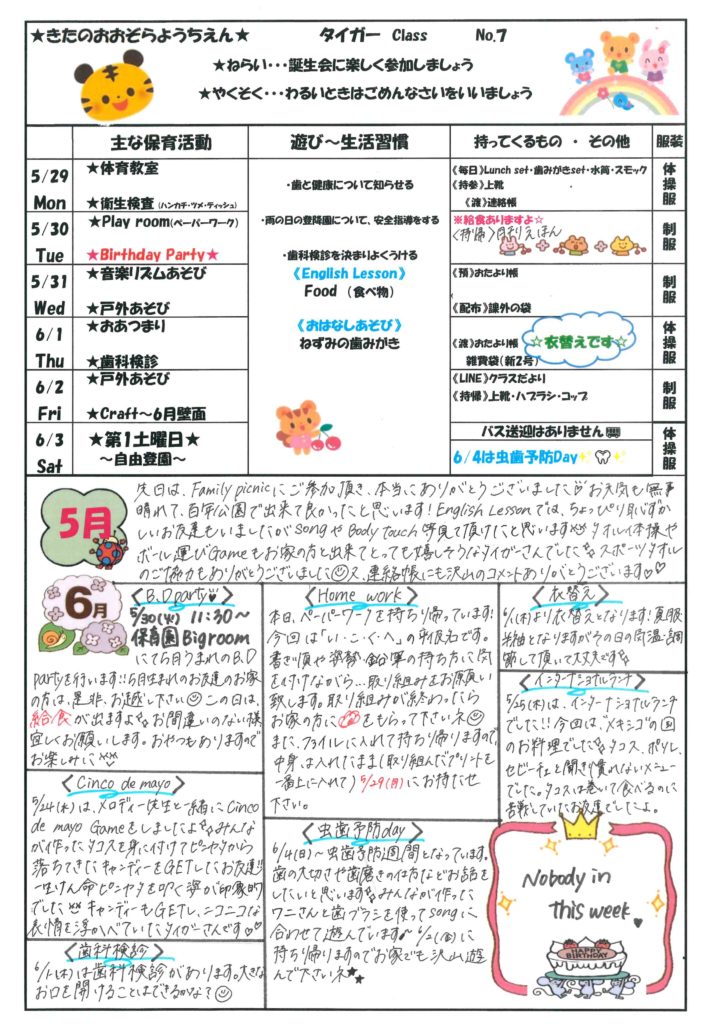 ★きたのおおぞらようちえん★　タイガー Class　No.7
★ねらい・・・誕生会に楽しく参加しましょう
★やくそく・・・わるいときはごめんなさいをいいましょう
主な保育活動　遊び～生活習慣　持ってくるもの ・ その他　服装
5/29 Mon
★体育教室
★衛生検査（ハンカチ・ツメ・ティッシュ）
5/30 Tue
★Play room(ペーパーワーク)
★Birthday Party★
5/31 Wed
★音楽リズムあそび
★戸外あそび
6/1 Thu
★おあつまり
★歯科検診
6/2 Fri
★戸外あそび
★Craft～6月壁面
6/3 Sat
★第1土曜日★
～自由登園～
・歯と健康について知らせる
・雨の日の登降園について、安全指導をする
・歯科検診を決まりよくうける
《English Lesson》
Food （食べ物）
《おはなしあそび》
ねずみの歯みがき
《毎日》Lunch set・歯みがきset・水筒・スモック
《持参》上靴
《渡》連絡帳
※給食ありますよ☆
《持帰》月刊えほん
《預》おたより帳
《配布》課外の袋
《渡》おたより帳
雑費袋（新2号）
☆衣替えです☆
《LINE》クラスだより
《持帰》上靴・ハブラシ・コップ
バス送迎はありません
6/4は虫歯予防Day
体操服
制服
制服
体操服
制服
体操服
5月
先日は、Family picnicにご参加頂き、本当にありがとうございました♡お天気も無事
晴れて、百年公園で出来て良かったと思います！English Lessonでは、ちょっぴり恥ずか
しいお友達もいましたがsongやBody touch等見て頂けたと思います タオル体操や
ボール運びGameもお家の方と出来てとっても嬉しそうなタイガーさんでした スポーツタオル
のご協力もありがとうございました 又、連絡帳にも沢山のコメントありがとうございます♡♡
6月
《B.D party♥》
5/30(火) 11:30～
保育園Bigroom
にて5月うまれのB.D
partyを行います!!5月生まれのお友達のお家
の方は、是非、お越し下さい この日は、
給食が出ますよ お間違いのない様
宜しくお願いします。おやつもありますので
お楽しみに
《Cinco de mayo》
5/24(水)は、メロディー先生と一緒にCinco
de mayo Gameをしましたよ みんな
が作ったタコスを身に付けてピニャタから
落ちてきたキャンディーをGETしたお友達!!
一生けん命ピニャタを叩く姿が印象的
でした キャンディーもGETし、ニコニコな
表情を浮かべていたタイガーさんです♡♡
《歯科検診》
6/1(木)は歯科検診があります。大きな
お口を開けることはできるかな？
《Home work》
本日、ペーパーワークを持ち帰っています！
今回は「い・こ・く・へ」の平仮名です。
書き順や姿勢・鉛筆の持ち方に気
を付けながら…取り組みをお願い
致します。取り組みが終わったら
お家の方に をもらって下さいネ
また、ファイルに入れて持ち帰りますので、
中身は入れたまま(取り組んだプリントを
一番上に入れて)5/29(月)にお持たせ
下さい。
《虫歯予防day》
6/4(日)～虫歯予防週間となっています。
歯の大切さや歯磨きの仕方などお話を
したいと思います みんなが作った
ワニさんと歯ブラシを使ってsongに
合わせて遊んでいます 6/2(金)に
持ち帰りますのでお家でも沢山遊
んで下さいネ★★
《衣替え》
6/1(木)より衣替えとなります！夏服
半袖となりますがその日の気温で調
節して頂いて大丈夫です
《インターナショナルランチ》
5/25(木)は、インターナショナルランチ
でした!!今回は、“メキシコ”の国
のお料理でした タコス、ポソレ、
セビーチェと聞き慣れないメニュー
でした。タコスは巻いて食べるのに
苦戦していたお友達でしたよ。
Nobody in
this week.♥
HAPPY BIRTHDAY